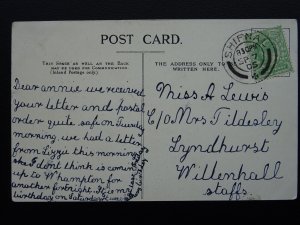 POST CARD.
THIS SPACE AS WELL AS THE BACK
MAY BE USED FOR COMMUNICATION.
(Inland Postage only)
THE ADDRESS ONLY TO
BE WRITTEN HERE.
SHIFNAL
Dear annie we received
your letter and postal
order quite safe on Tuesday
morning, we had a letter
from Lizzie this morning
she I dont think is coming
up to W'hampton for
another fortnight. It is my
birthday on Saturday
Miss A Lewis
C/O Mrs Tildesley
Lyndhurst
Willenhall
Staffs.